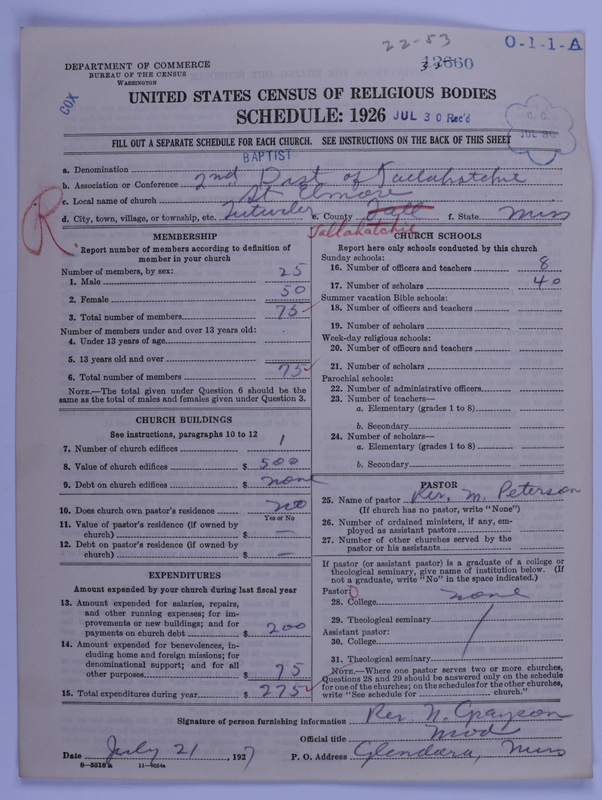 22-53
0-1-1-A
12660
DEPARTMENT OF COMMERCE
BUREAU OF THE CENSUS
WASHINGTON
COX
UNITED STATES CENSUS OF RELIGIOUS BODIES
SCHEDULE: 1926 JUL 30 Rec'd
JUL 30
FILL OUT A SEPARATE SCHEDULE FOR EACH CHURCH. SEE INSTRUCTIONS ON THE BACK OF THIS SHEET
BAPTIST
a. Denomination
b. Association or Conference 2nd Dist of Tallahatchie
c. Local name of church St Elmore
d. City, town, village, or township, etc. Tutwiler e. County Tall f. State Miss
R
Tallahatchie
MEMBERSHIP
Report number of members according to definition of
member in your church
Number of members, by sex:
1. Male 25
2. Female 50
3. Total number of members 75
Number of members under and over 13 years old:
4. Under 13 years of age
5. 13 years old and over
6. Total number of members 75
NOTE.—The total given under Question 6 should be the
same as the total of males and females given under Question 3.
CHURCH BUILDINGS
See instructions, paragraphs 10 to 12
7. Number of church edifices 1
8. Value of church edifices $ 500
9. Debt on church edifices $ none
10. Does church own pastor's residence no
Yes or No
11. Value of pastor's residence (if owned by
church) $ —
12. Debt on pastor's residence (if owned by
church) $ —
EXPENDITURES
Amount expended by your church during last fiscal year
13. Amount expended for salaries, repairs,
and other running expenses; for im-
provements or new buildings; and for
payments on church debt $ 200
14. Amount expended for benevolences, in-
cluding home and foreign missions; for
denominational support; and for all
other purposes $ 75
15. Total expenditures during year $ 275
CHURCH SCHOOLS
Report here only schools conducted by this church
Sunday schools:
16. Number of officers and teachers 8
17. Number of scholars 40
Summer vacation Bible schools:
18. Number of officers and teachers
19. Number of scholars
Week-day religious schools:
20. Number of officers and teachers
21. Number of scholars
Parochial schools:
22. Number of administrative officers
23. Number of teachers—
a. Elementary (grades 1 to 8)
b. Secondary
24. Number of scholars—
a. Elementary (grades 1 to 8)
b. Secondary
PASTOR
25. Name of pastor Rev. M. Peterson
(If church has no pastor, write "None")
26. Number of ordained ministers, if any, em-
ployed as assistant pastors
27. Number of other churches served by the
pastor or his assistants
If pastor (or assistant pastor) is a graduate of a college or
theological seminary, give name of institution below. (If
not a graduate, write "No" in the space indicated.)
Pastor:
28. College none
29. Theological seminary
Assistant pastor:
30. College
31. Theological seminary
NOTE.—Where one pastor serves two or more churches,
Questions 28 and 29 should be answered only on the schedule
for one of the churches; on the schedules for the other churches,
write "See schedule for church."
Signature of person furnishing information Rev N. Grayson
Official title Mod
Date July 21, 1927 P. O. Address Glendara, Miss
8—5518a 11—9554a